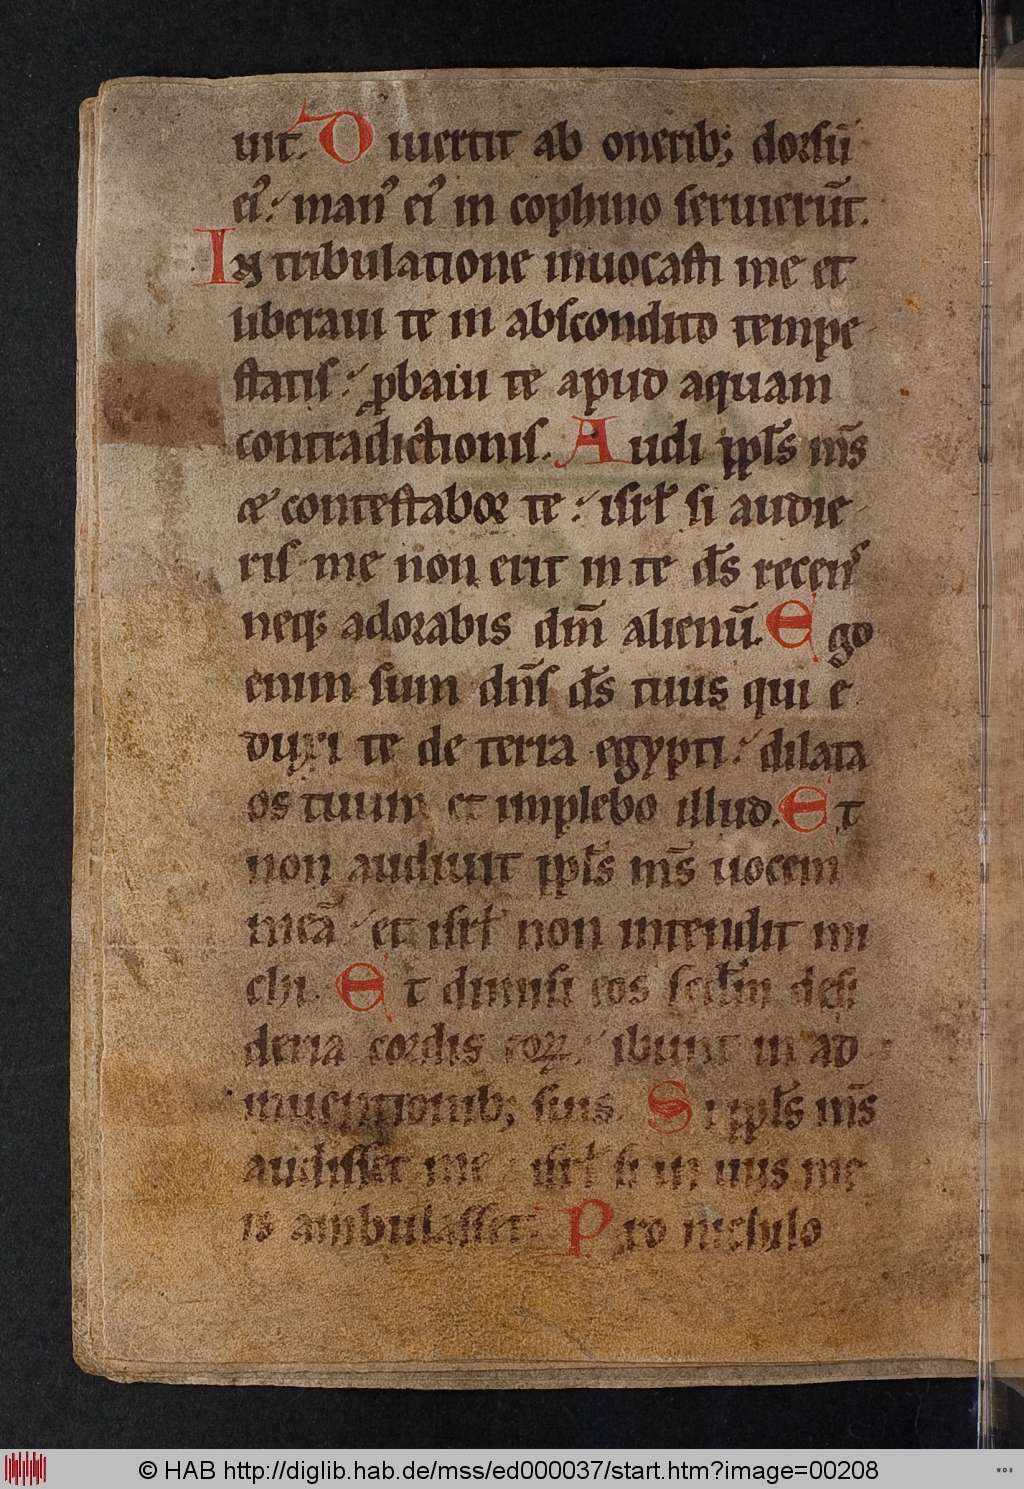 uit. Diuertit ab onerib; dorsū
ei᾽: man᾽ ei᾽ in cophino seruierūt.
In tribulatione inuocasti me et
liberaui te in abscondito tempe
statis: ꝓbaui te apud aquam
contradictionis. Audi ppl̄s m̄s
& contestabor te: isrl̄ si audie
ris me non erit in te d̄s recens
neq; adorabis dm̄ alienū. Ego
enim sum dn̄s d̄s tuus qui e
duxi te de terra egypti: dilata
os tuum et implebo illud. Et
non audiuit ppl̄s m̄s uocem
meā: et isrl̄ non intendit mi
chi. Et dimisi eos scd̄m desi
deria cordis eoꝝ: ibunt in ad
inuentionib; suis. Si ppl̄s m̄s
audisset me isrl̄ si in uiis me
is ambulasset. Pro nichilo
© HAB http://diglib.hab.de/mss/ed000037/start.htm?image=00208